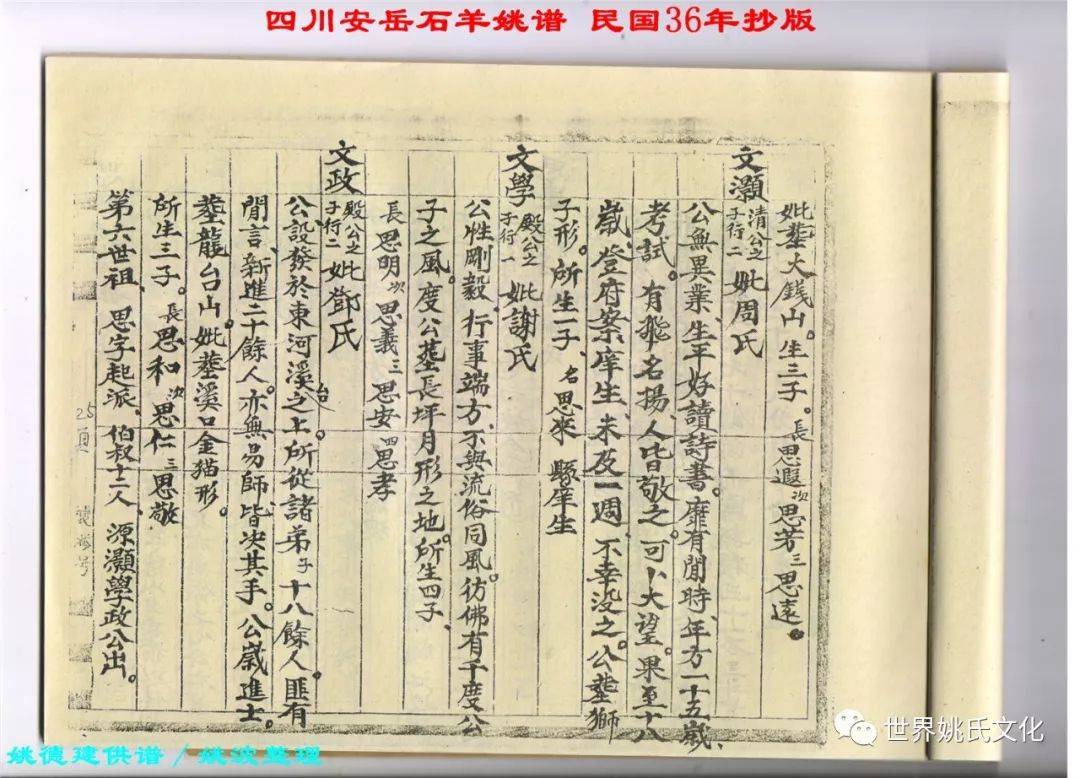 四川安岳石羊姚谱 民国36年抄版
妣塟大錢山。生三子。長思遐次思芳三思遠。
文灝清公之子行二妣周氏
公無異業、生平好讀詩書。靡有閒時、年方一十五歲、
考試。有飛名揚人皆敬之。可卜大望。果至十八
歲、登府案庠生、未及一週、不幸没之。公塟獅
子形。所生一子、名思來 縣庠生
文學殿公之子行一妣謝氏
公性剛毅、行事端方、不與流俗同風。彷佛有千度公
子之風。度公塟長坪月形之地。所生四子、
長思明次思義三思安四思孝
文政殿公之子行二妣鄧氏
公設發於東河溪台之上。所從諸弟子十八餘人。匪有
閒言、新進二十餘人。亦無易師、皆决其手。公歲進士。
塟龍台山。妣塟溪口金猫形。
所生三子。長思和次思仁三思敬
第六世祖、思字起派、伯叔十二人、源灝學政公出。
25頁
姚德建供谱/姚波整理
世界姚氏文化